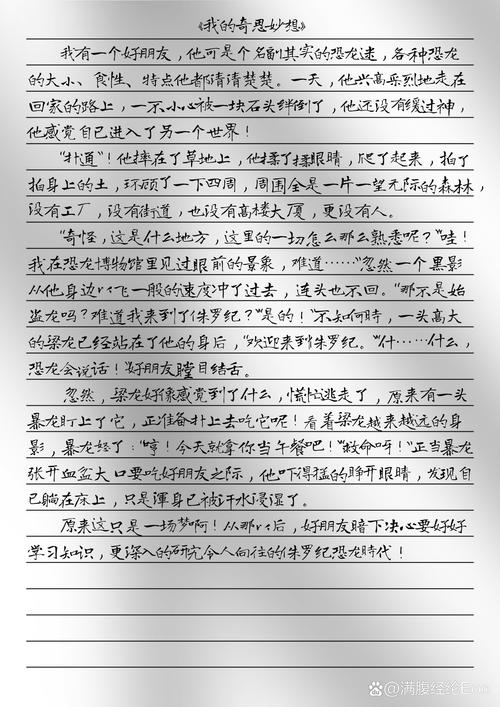 《我的奇思妙想》
我有一个好朋友，他可是个名副其实的恐龙迷，各种恐龙
的大小、食性、特点他都清清楚楚。一天，他兴高采烈地走在
回家的路上，一不小心被一块石头绊倒了，他还没有缓过神，
他感觉自己进入了另一个世界！
“扑通”！他摔在了草地上，他揉了揉眼睛，爬了起来，拍了
拍身上的土，环顾了一下四周，周围全是一片一望无际的森林，
没有工厂，没有街道，也没有高楼大厦，更没有人。
“奇怪，这是什么地方，这里的一切怎么那么熟悉呢？”哇！
我在恐龙博物馆里见过眼前的景象，难道……”忽然一个黑影
从他身边以飞一般的速度冲了过去，连头也不回。“那不是始
盗龙吗？难道我来到了侏罗纪？”是的！不知何時，一头高大
的梁龙已经站在了他的身后，“欢迎来到侏罗纪。”什……什么，
恐龙会说话！”好朋友瞠目结舌。
忽然，梁龙好像感觉到了什么，慌忙逃走了，原来有一头
暴龙盯上了它，正准备扑上去吃它呢！看着梁龙越来越远的身
影，暴龙怒了：“哼！今天就拿你当午餐吧！”“救命呀！”正当暴龙
张开血盆大口要吃好朋友之际，他吓得猛的睁开眼睛，发现自
己躺在床上，只是渾身已被汗水浸湿了。
原来这只是一场梦啊！从那以后，好朋友暗下决心要好好
学习知识，更深入的研究令人向往的侏罗纪恐龙時代！
@满腹经纶E